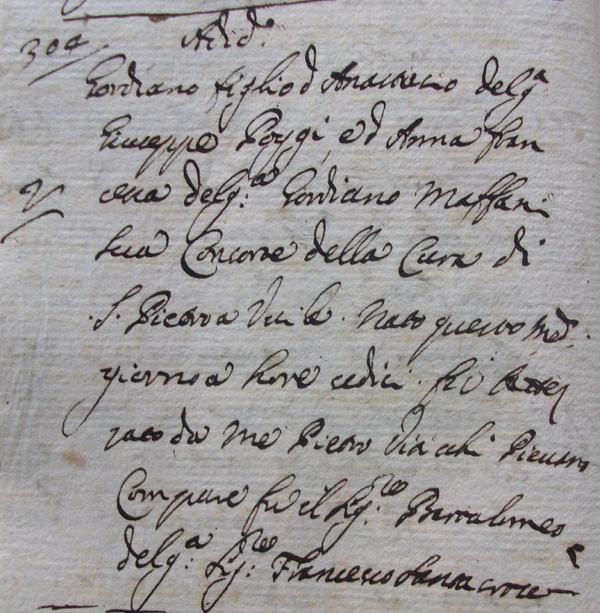 304 Adi d.º
Gordiano figlio d Anastasio del q.ᵃ
Giuseppe Poggi, e d Anna Fran
cesca del q:ᵃ Gordiano Maffani
sua Consorte della Cura di
S. Pietro a Vico. Nato questo med.
giorno a hore sedici fu Battez
zato da me Pietro Piovano
Compare fu il Sig:ʳᵉ Bartolomeo
del q:ᵃ Sig:ʳᵉ Francesco Santa croce